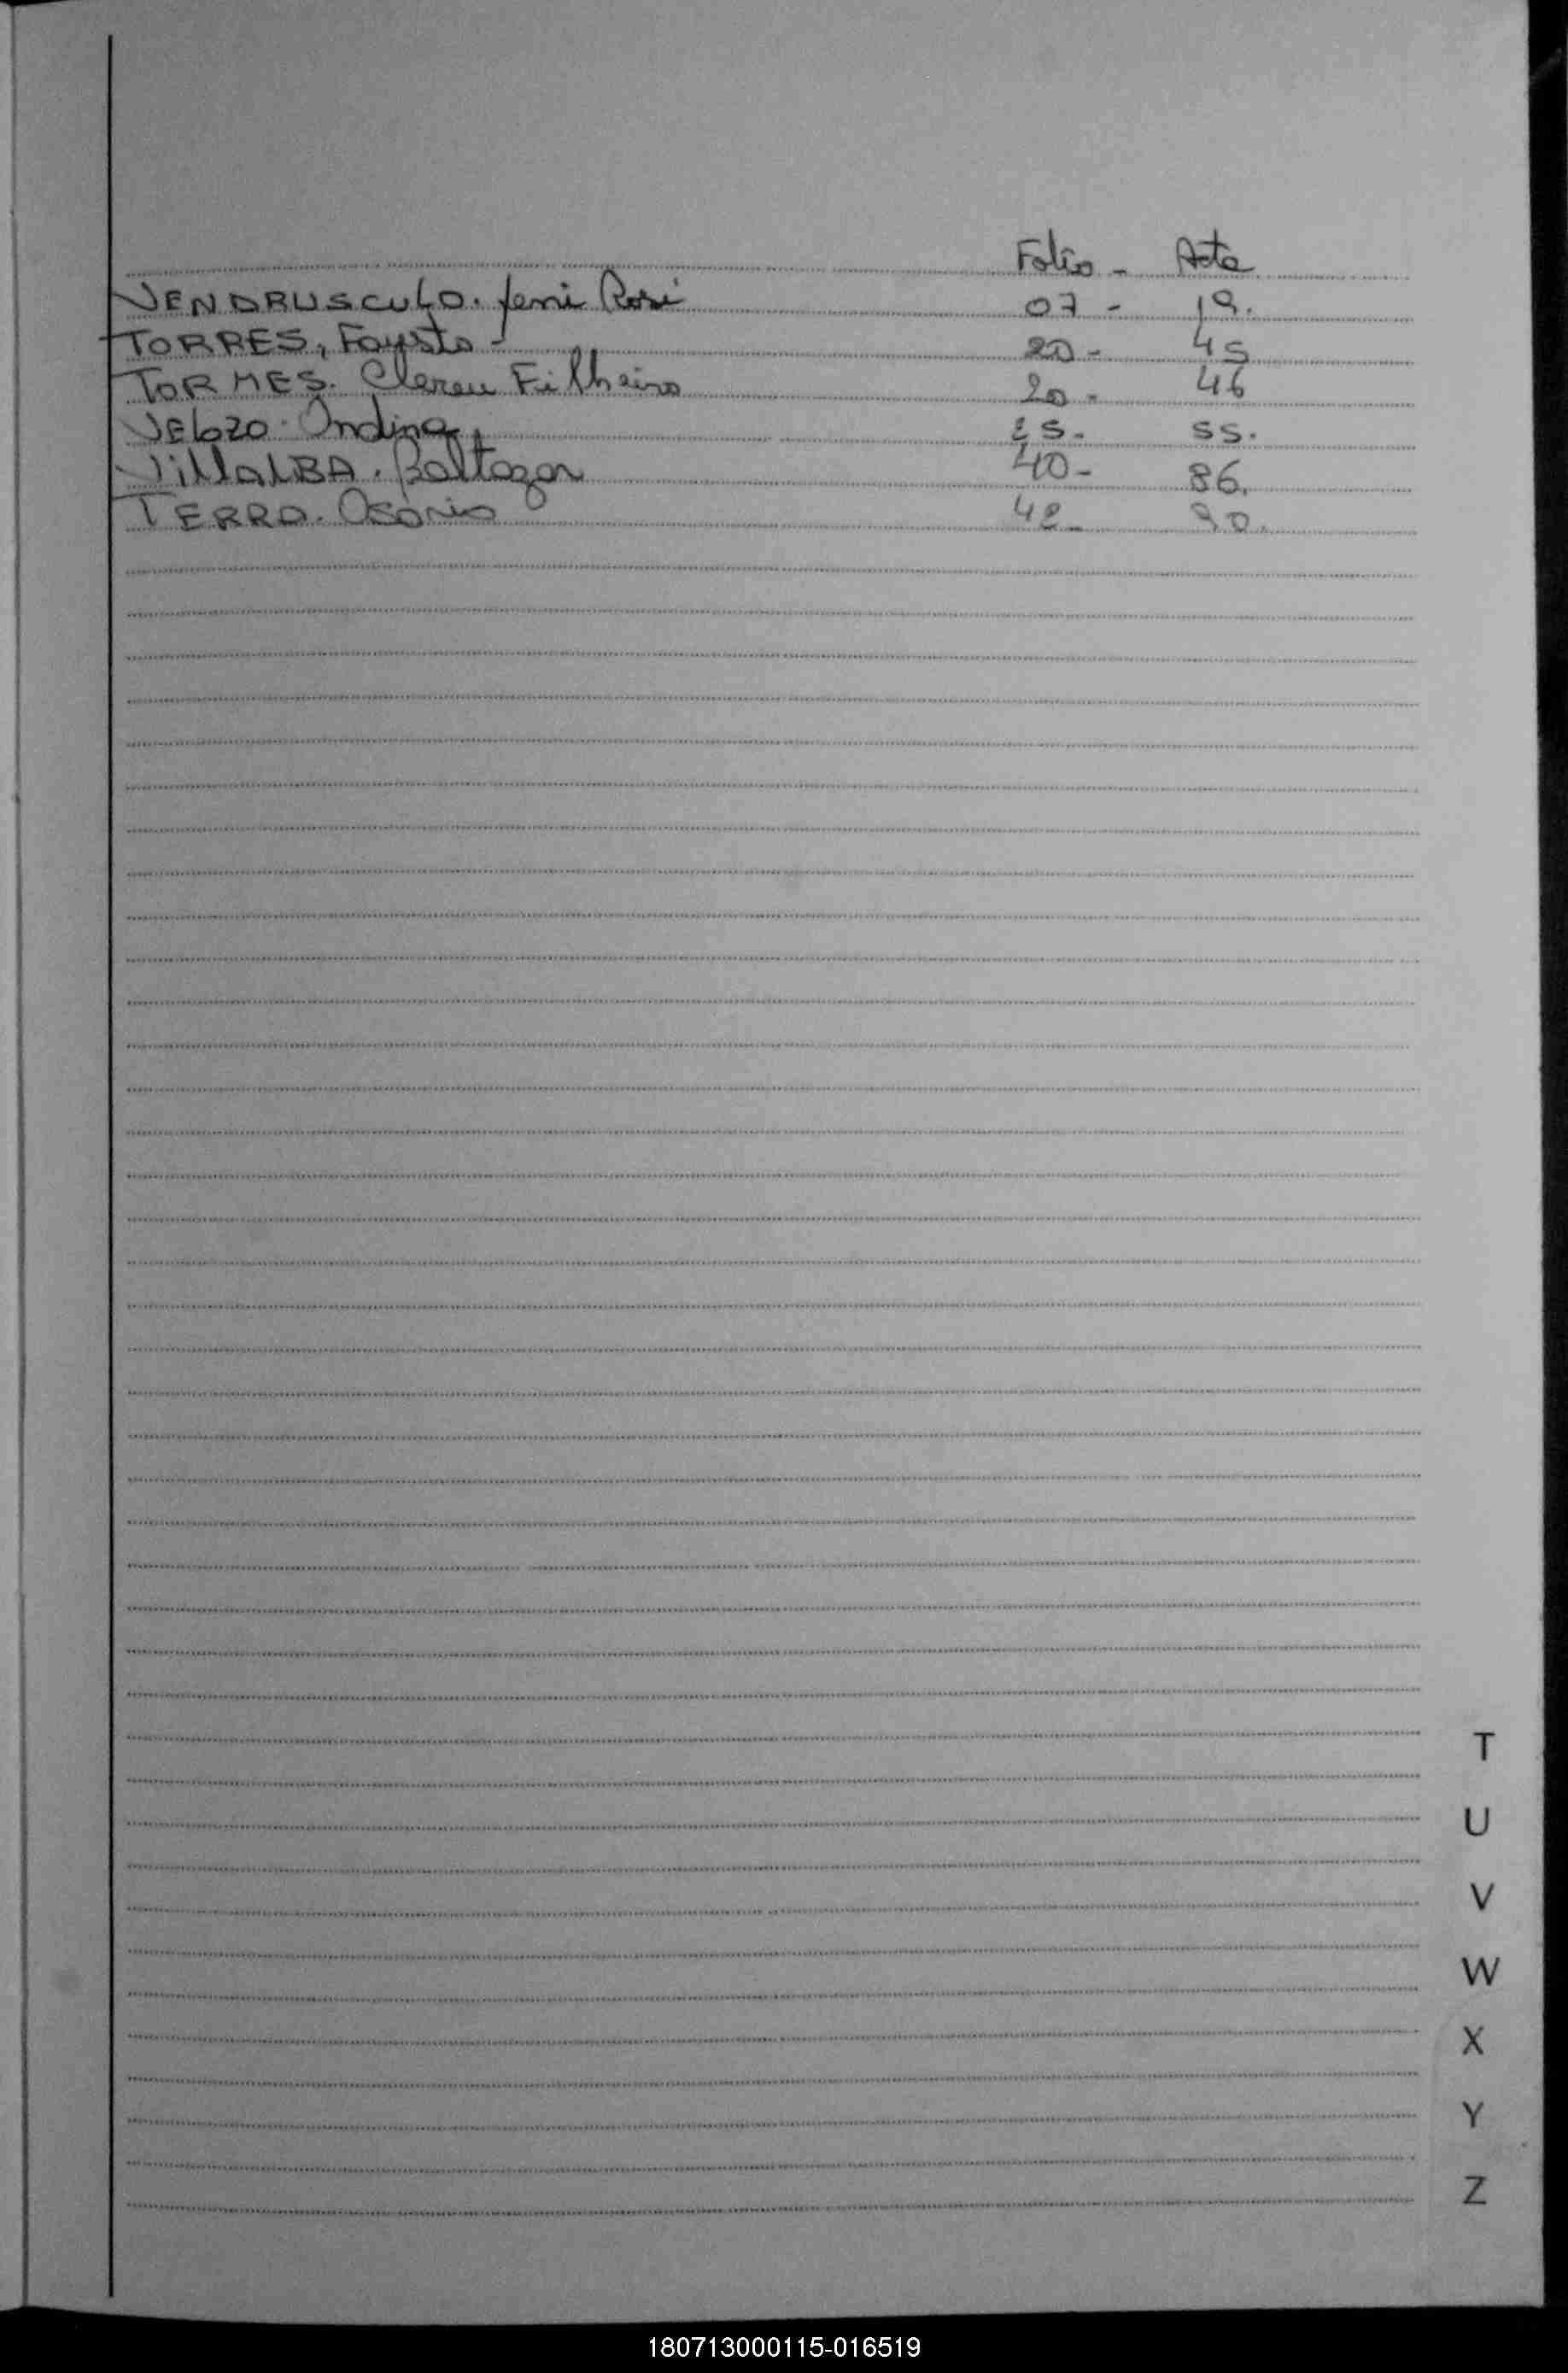 Folio - Acta
VENDRUSCULO. Jeni Rosi 07 - 19.
TORRES, Fausto - 20 - 45
TORMES. Clereu Filheiro 20 - 46
VElozo. Ondina 25. 55.
VillalBA. Baltazar 40 - 86.
TERRO. Osorio 42 - 90.
T
U
V
W
X
Y
Z
180713000115-016519